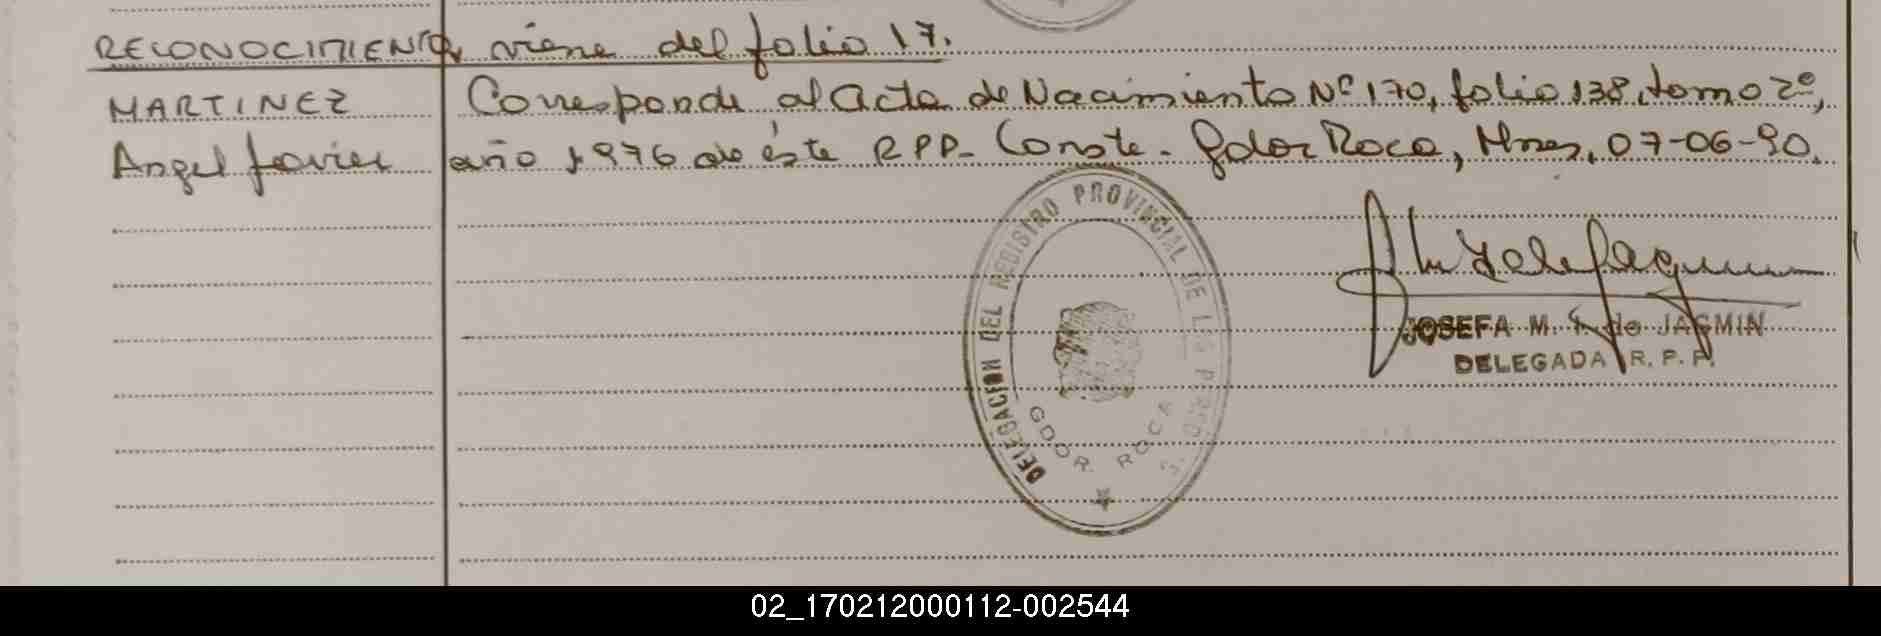 RECONOCIMIENTO, viene del folio 17.
MARTINEZ Corresponde al Acta de Nacimiento Nº 170, folio 138, tomo 2º,
Angel Javier año 1976 de éste RPP.- Conste.- Gdor Roca, Mnes, 07-06-90.
DELEGACION DEL REGISTRO PROVINCIAL DE LAS PERSO
GDOR. ROCA
JOSEFA M. de JASMIN
DELEGADA R. P. P.
02_170212000112-002544